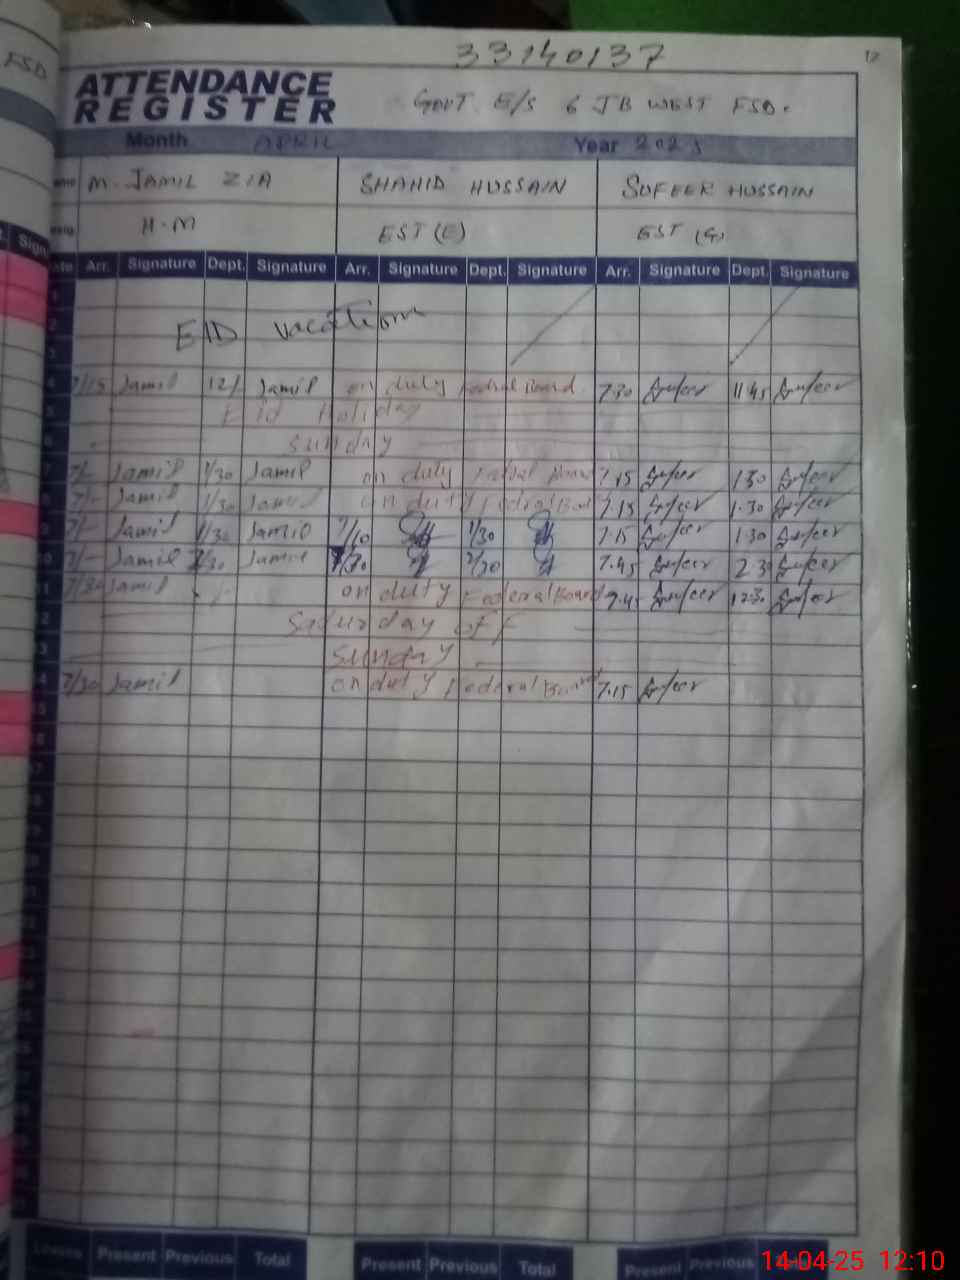 FSD
33140137
12
ATTENDANCE
REGISTER
GOVT E/S 6 JB WEST FSD.
Month APRIL Year 2025
M. JAMIL ZIA SHAHID HUSSAIN SUFEER HUSSAIN
H.M EST (E) EST (G)
Sign
Arr. Signature Dept. Signature Arr. Signature Dept. Signature Arr. Signature Dept. Signature
EID vacation
7/15 Jamil 12/ Jamil on duty Fedral Board 7.30 Sufeer 11.45 Sufeer
Eid Holiday
sunday
7/- Jamil 1/30 Jamil on duty Fedral Board 7.15 Sufeer 1.30 Sufeer
7/- Jamil 1/30 Jamil on duty Federal Board 7.15 Sufeer 1.30 Sufeer
7/- Jamil 1/30 Jamil 7/10 1/30 7.15 Sufeer 1.30 Sufeer
7/- Jamil 2/30 Jamil 7/30 2/30 7.45 Sufeer 2.30 Sufeer
7/30 Jamil on duty Federal Board Sufeer 12.30 Sufeer
Saturday off
sunday
7/30 Jamil on duty Federal Board 7.15 Sufeer
Leaves Present Previous Total Present Previous Total Present Previous
14-04-25 12:10